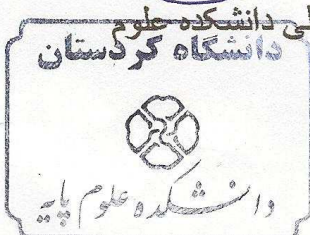 لی دانشکده علوم
دانشگاه کردستان
دانشکده علوم پایه